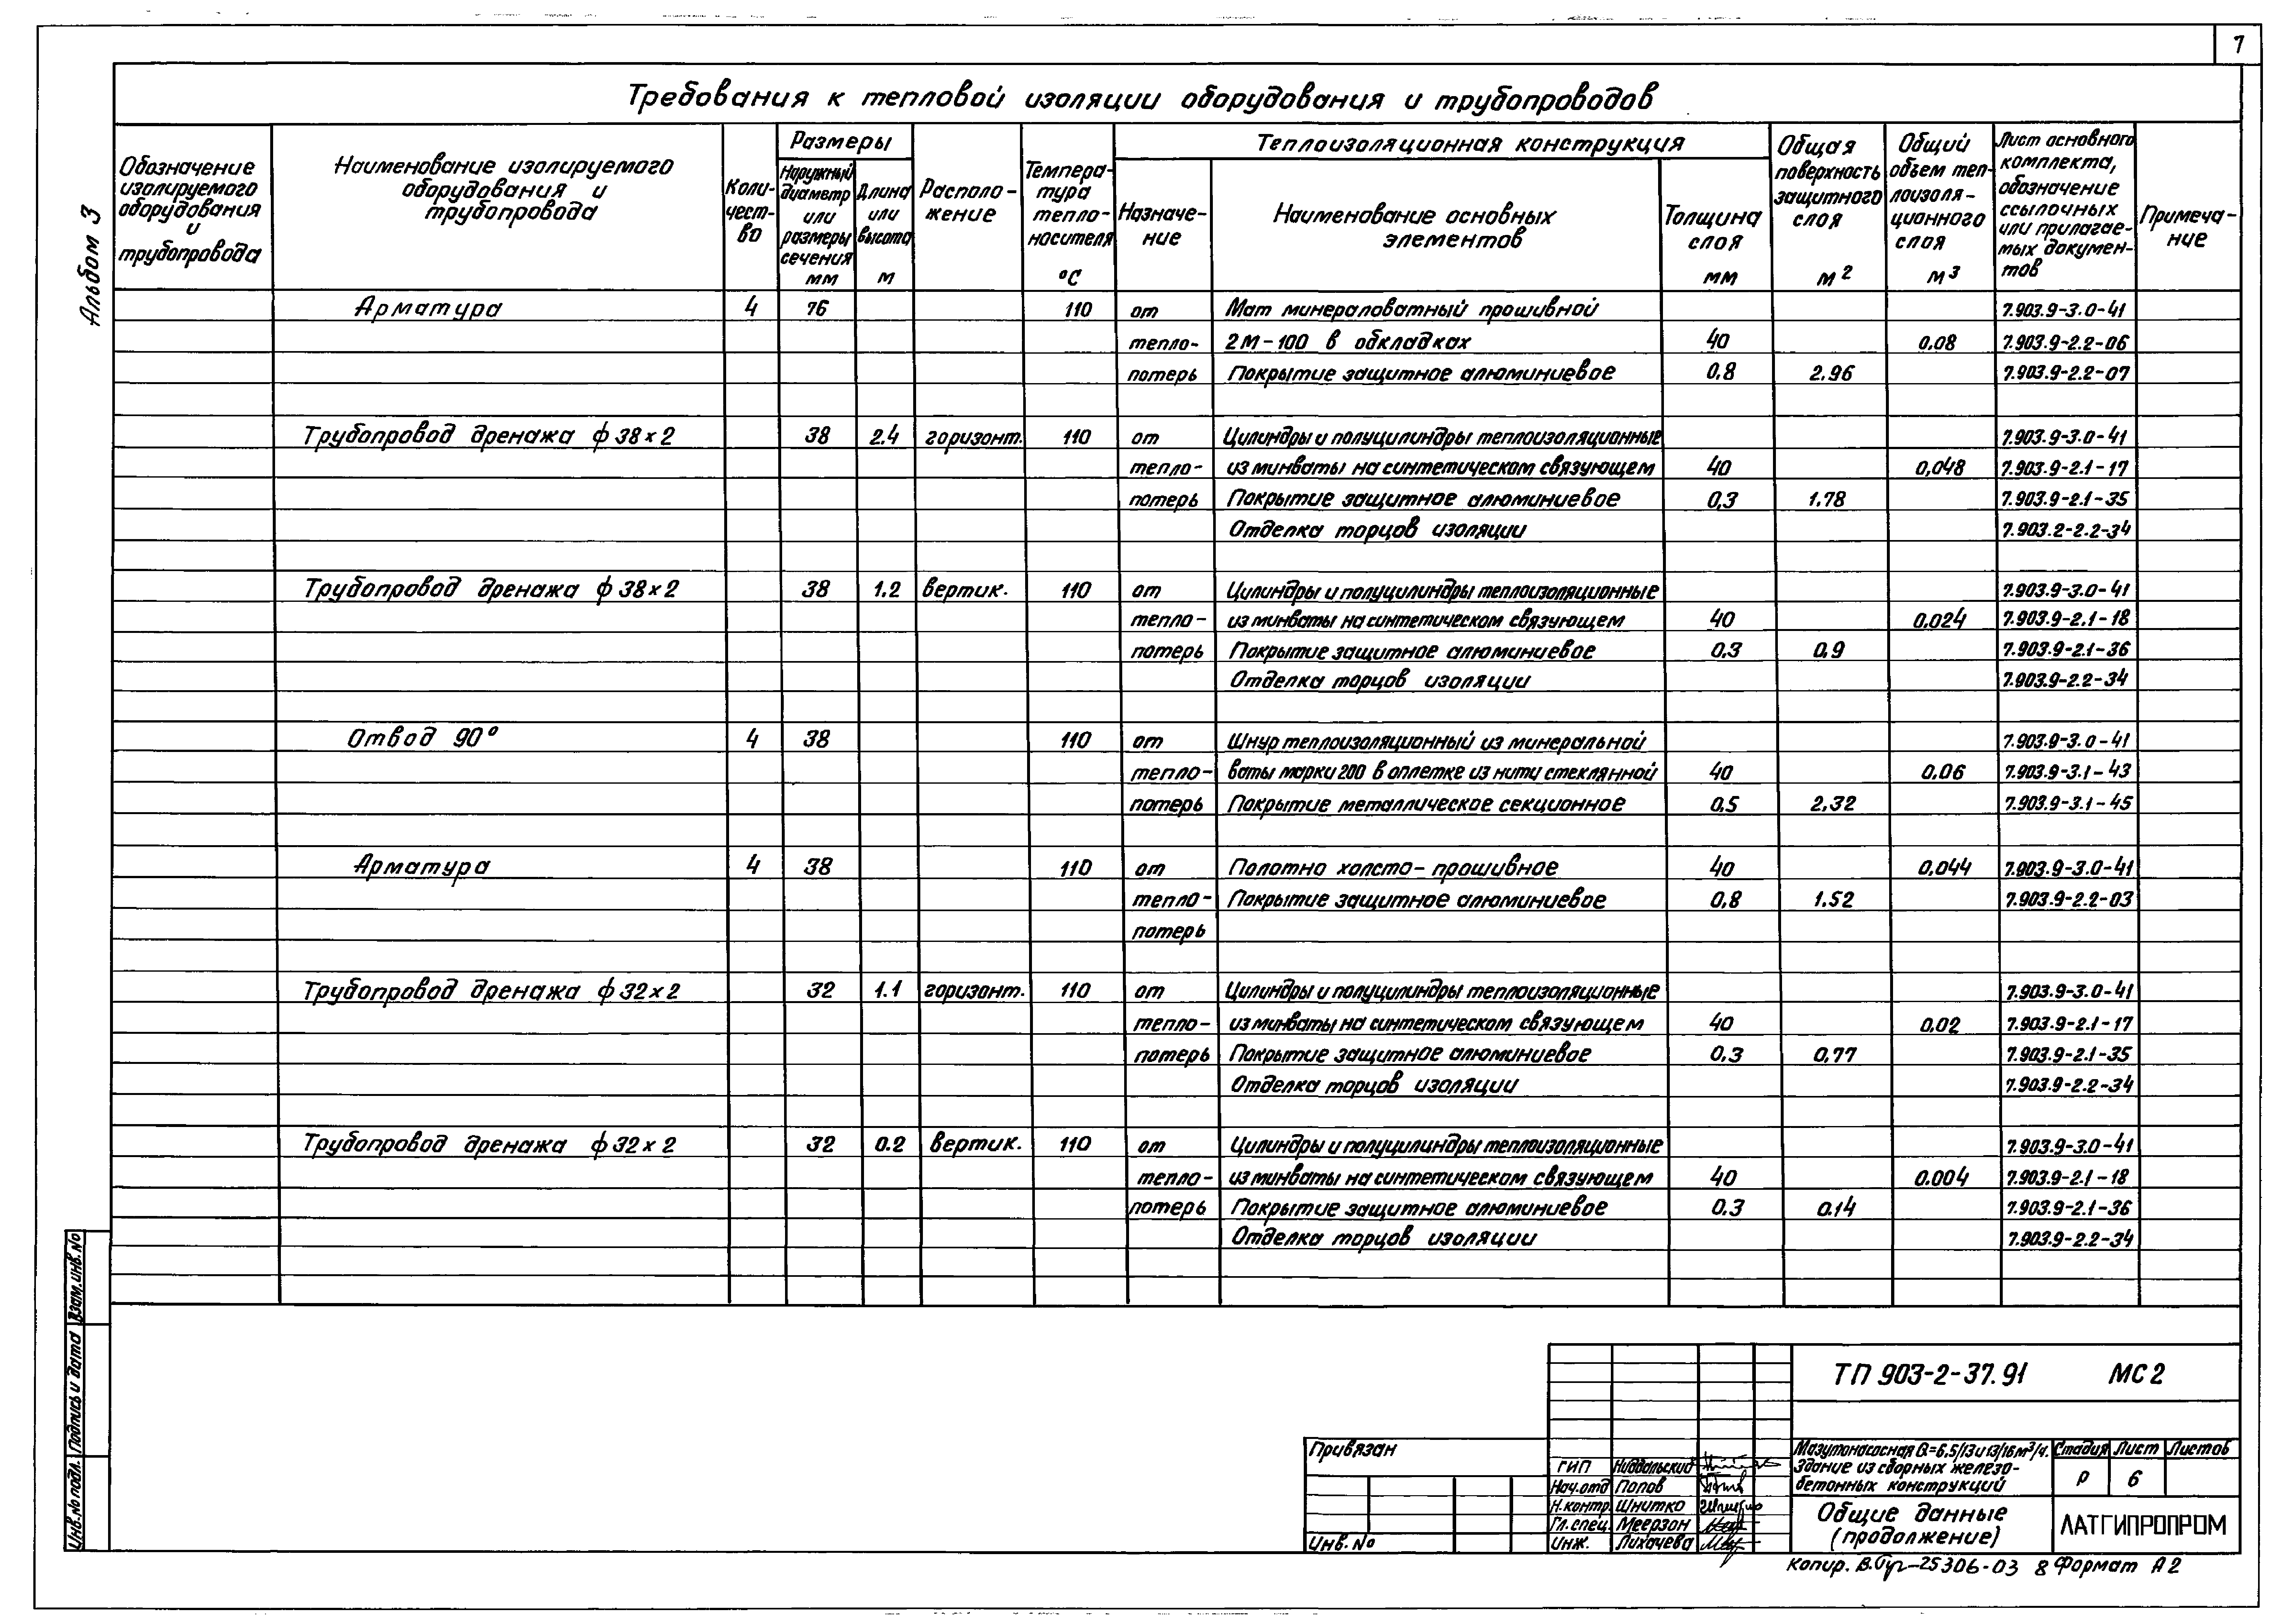 7
Альбом 3
Требования к тепловой изоляции оборудования и трубопроводов
Обозначение изолируемого оборудования и трубопровода
Наименование изолируемого оборудования и трубопровода
Коли-чест-во
Размеры
Наружный диаметр или размеры сечения мм
Длина или высота м
Располо-жение
Темпера-тура тепло-носителя °С
Теплоизоляционная конструкция
Назначе-ние
Наименование основных элементов
Толщина слоя мм
Общая поверхность защитного слоя м2
Общий объем теп-лоизоля-ционного слоя м3
Лист основного комплекта, обозначение ссылочных или прилагае-мых докумен-тов
Примеча-ние
Арматура 4 76 110 от Мат минераловатный прошивной 7.903.9-3.0-41
тепло- 2М-100 в обкладках 40 0,08 7.903.9-2.2-06
потерь Покрытие защитное алюминиевое 0,8 2.96 7.903.9-2.2-07
Трубопровод дренажа ф38×2 38 2.4 горизонт. 110 от Цилиндры и полуцилиндры теплоизоляционные 7.903.9-3.0-41
тепло- из минваты на синтетическом связующем 40 0,048 7.903.9-2.1-17
потерь Покрытие защитное алюминиевое 0,3 1.78 7.903.9-2.1-35
Отделка торцов изоляции 7.903.2-2.2-34
Трубопровод дренажа ф38×2 38 1.2 вертик. 110 от Цилиндры и полуцилиндры теплоизоляционные 7.903.9-3.0-41
тепло- из минваты на синтетическом связующем 40 0,024 7.903.9-2.1-18
потерь Покрытие защитное алюминиевое 0,3 0,9 7.903.9-2.1-36
Отделка торцов изоляции 7.903.9-2.2-34
Отвод 90° 4 38 110 от Шнур теплоизоляционный из минеральной 7.903.9-3.0-41
тепло- ваты марки 200 в оплетке из нити стеклянной 40 0,06 7.903.9-3.1-43
потерь Покрытие металлическое секционное 0,5 2,32 7.903.9-3.1-45
Арматура 4 38 110 от Полотно холсто-прошивное 40 0,044 7.903.9-3.0-41
тепло- Покрытие защитное алюминиевое 0,8 1.52 7.903.9-2.2-03
потерь
Трубопровод дренажа ф32×2 32 1.1 горизонт. 110 от Цилиндры и полуцилиндры теплоизоляционные 7.903.9-3.0-41
тепло- из минваты на синтетическом связующем 40 0,02 7.903.9-2.1-17
потерь Покрытие защитное алюминиевое 0.3 0,77 7.903.9-2.1-35
Отделка торцов изоляции 7.903.9-2.2-34
Трубопровод дренажа ф32×2 32 0.2 вертик. 110 от Цилиндры и полуцилиндры теплоизоляционные 7.903.9-3.0-41
тепло- из минваты на синтетическом связующем 40 0.004 7.903.9-2.1-18
потерь Покрытие защитное алюминиевое 0.3 0.14 7.903.9-2.1-36
Отделка торцов изоляции 7.903.9-2.2-34
Взам. инв. №
Подпись и дата
Инв. № подл.
Привязан
Инв. №
ГИП
Нач.отд Попов
Н.контр. Шнитко
Гл.спец. Меерзон
Инж. Лихачева
ТП 903-2-37.91 МС2
Мазутонасосная Q=6,5/13 и 13/16 м3/ч.
Здание из сборных железо-
бетонных конструкций
Стадия Лист Листов
Р 6
Общие данные
(продолжение)
ЛАТГИПРОПРОМ
Копир. 25306-03 8 Формат А2